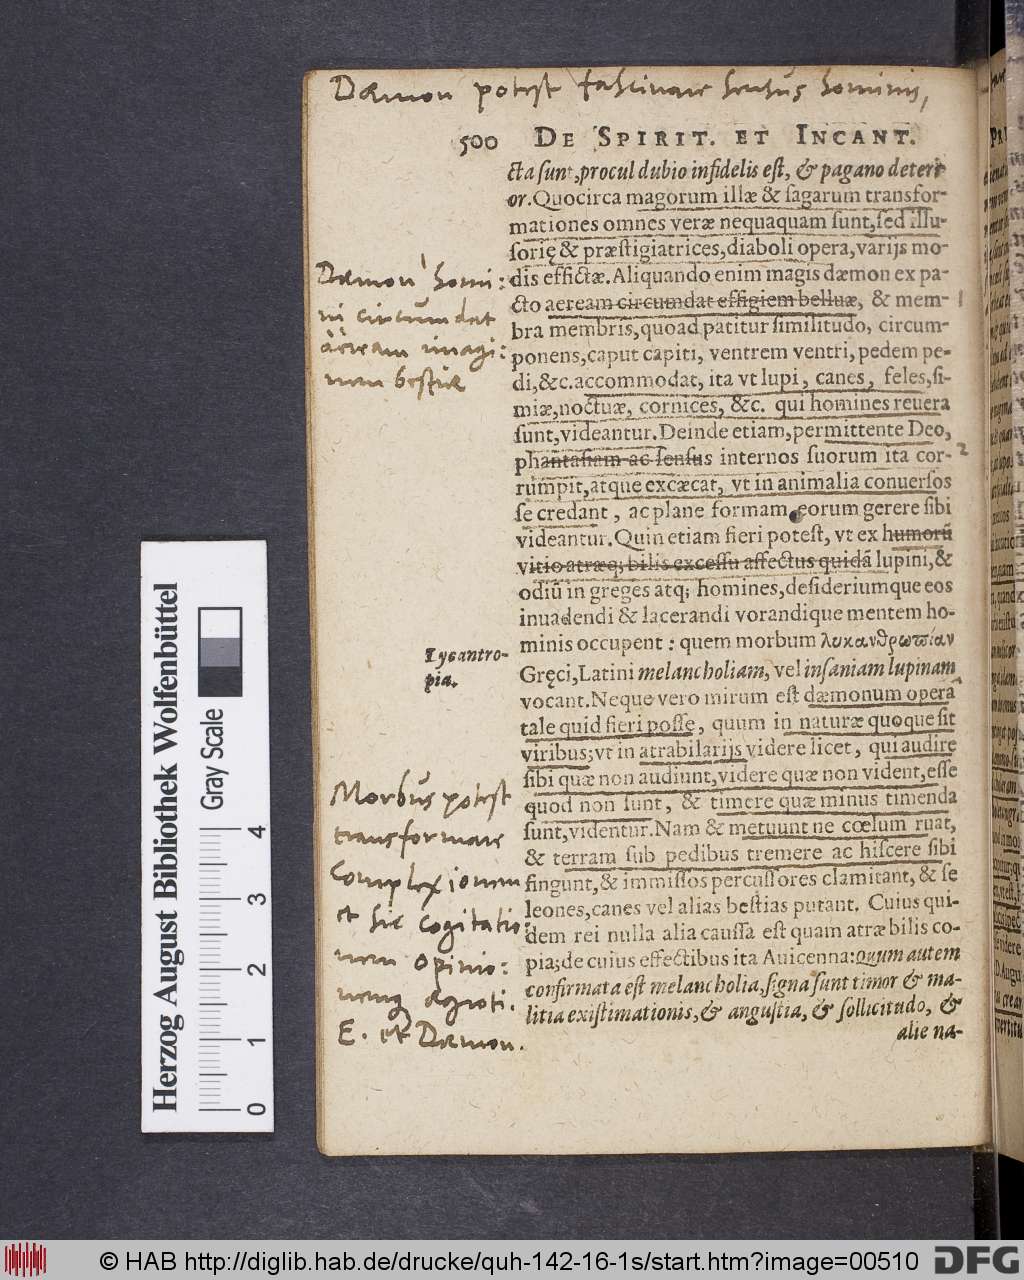 Dæmon potest fascinare sensus hominis,
500 DE SPIRIT. ET INCANT.
cta sunt, procul dubio infidelis est, & pagano deteri
or. Quocirca magorum illæ & sagarum transfor-
mationes omnes veræ nequaquam sunt, sed illu-
sorię & præstigiatrices, diaboli opera, varijs mo-
dis effictæ. Aliquando enim magis dæmon ex pa-
cto aeream circumdat effigiem belluæ, & mem-
bra membris, quoad patitur similitudo, circum-
ponens, caput capiti, ventrem ventri, pedem pe-
di, &c. accommodat, ita vt lupi, canes, feles, si-
miæ, noctuæ, cornices, &c. qui homines reuera
sunt, videantur. Deinde etiam, permittente Deo,
phantasiam ac sensus internos suorum ita cor-
rumpit, atque excæcat, vt in animalia conuersos
se credant, ac plane formam eorum gerere sibi
videantur. Quin etiam fieri potest, vt ex humorū
vitio atræq; bilis excessu affectus quidā lupini, &
odiū in greges atq; homines, desideriumque eos
inuadendi & lacerandi vorandique mentem ho-
minis occupent: quem morbum λυκανθρωπίαν
Gręci, Latini melancholiam, vel insaniam lupinam
vocant. Neque vero mirum est dæmonum opera
tale quid fieri posse, quum in naturæ quoque sit
viribus; vt in atrabilarijs videre licet, qui audire
sibi quæ non audiunt, videre quæ non vident, esse
quod non sunt, & timere quæ minus timenda
sunt, videntur. Nam & metuunt ne cœlum ruat,
& terram sub pedibus tremere ac hiscere sibi
fingunt, & immissos percussores clamitant, & se
leones, canes vel alias bestias putant. Cuius qui-
dem rei nulla alia caussa est quam atræ bilis co-
pia; de cuius effectibus ita Auicenna: quum autem
confirmata est melancholia, signa sunt timor & ma-
litia existimationis, & angustia, & sollicitudo, &
alie na-
Dæmon homi:
ni circumdat
aëream imagi:
nem bestiæ
1
2
Lycantro-
pia.
Morbus potest
transformare
Complexionem
et sic cogitatio:
nem opinio:
nemq ægroti.
E. et Dæmon.
Herzog August Bibliothek Wolfenbüttel
Gray Scale
0 1 2 3 4
© HAB http://diglib.hab.de/drucke/quh-142-16-1s/start.htm?image=00510
DFG